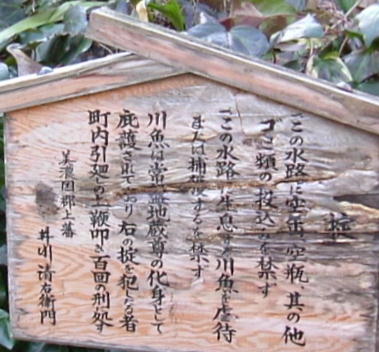 掟
一、この水路に空缶、空瓶、其の他
ゴミ類の投込みを禁ず
一、この水路に生息する川魚を虐待
または捕獲するを禁ず
川魚は常盤地蔵尊の化身として
庇護されており右の掟を犯したる者
町内引廻の上鞭叩き百回の刑に処す
美濃国郡上藩
井川清右衛門